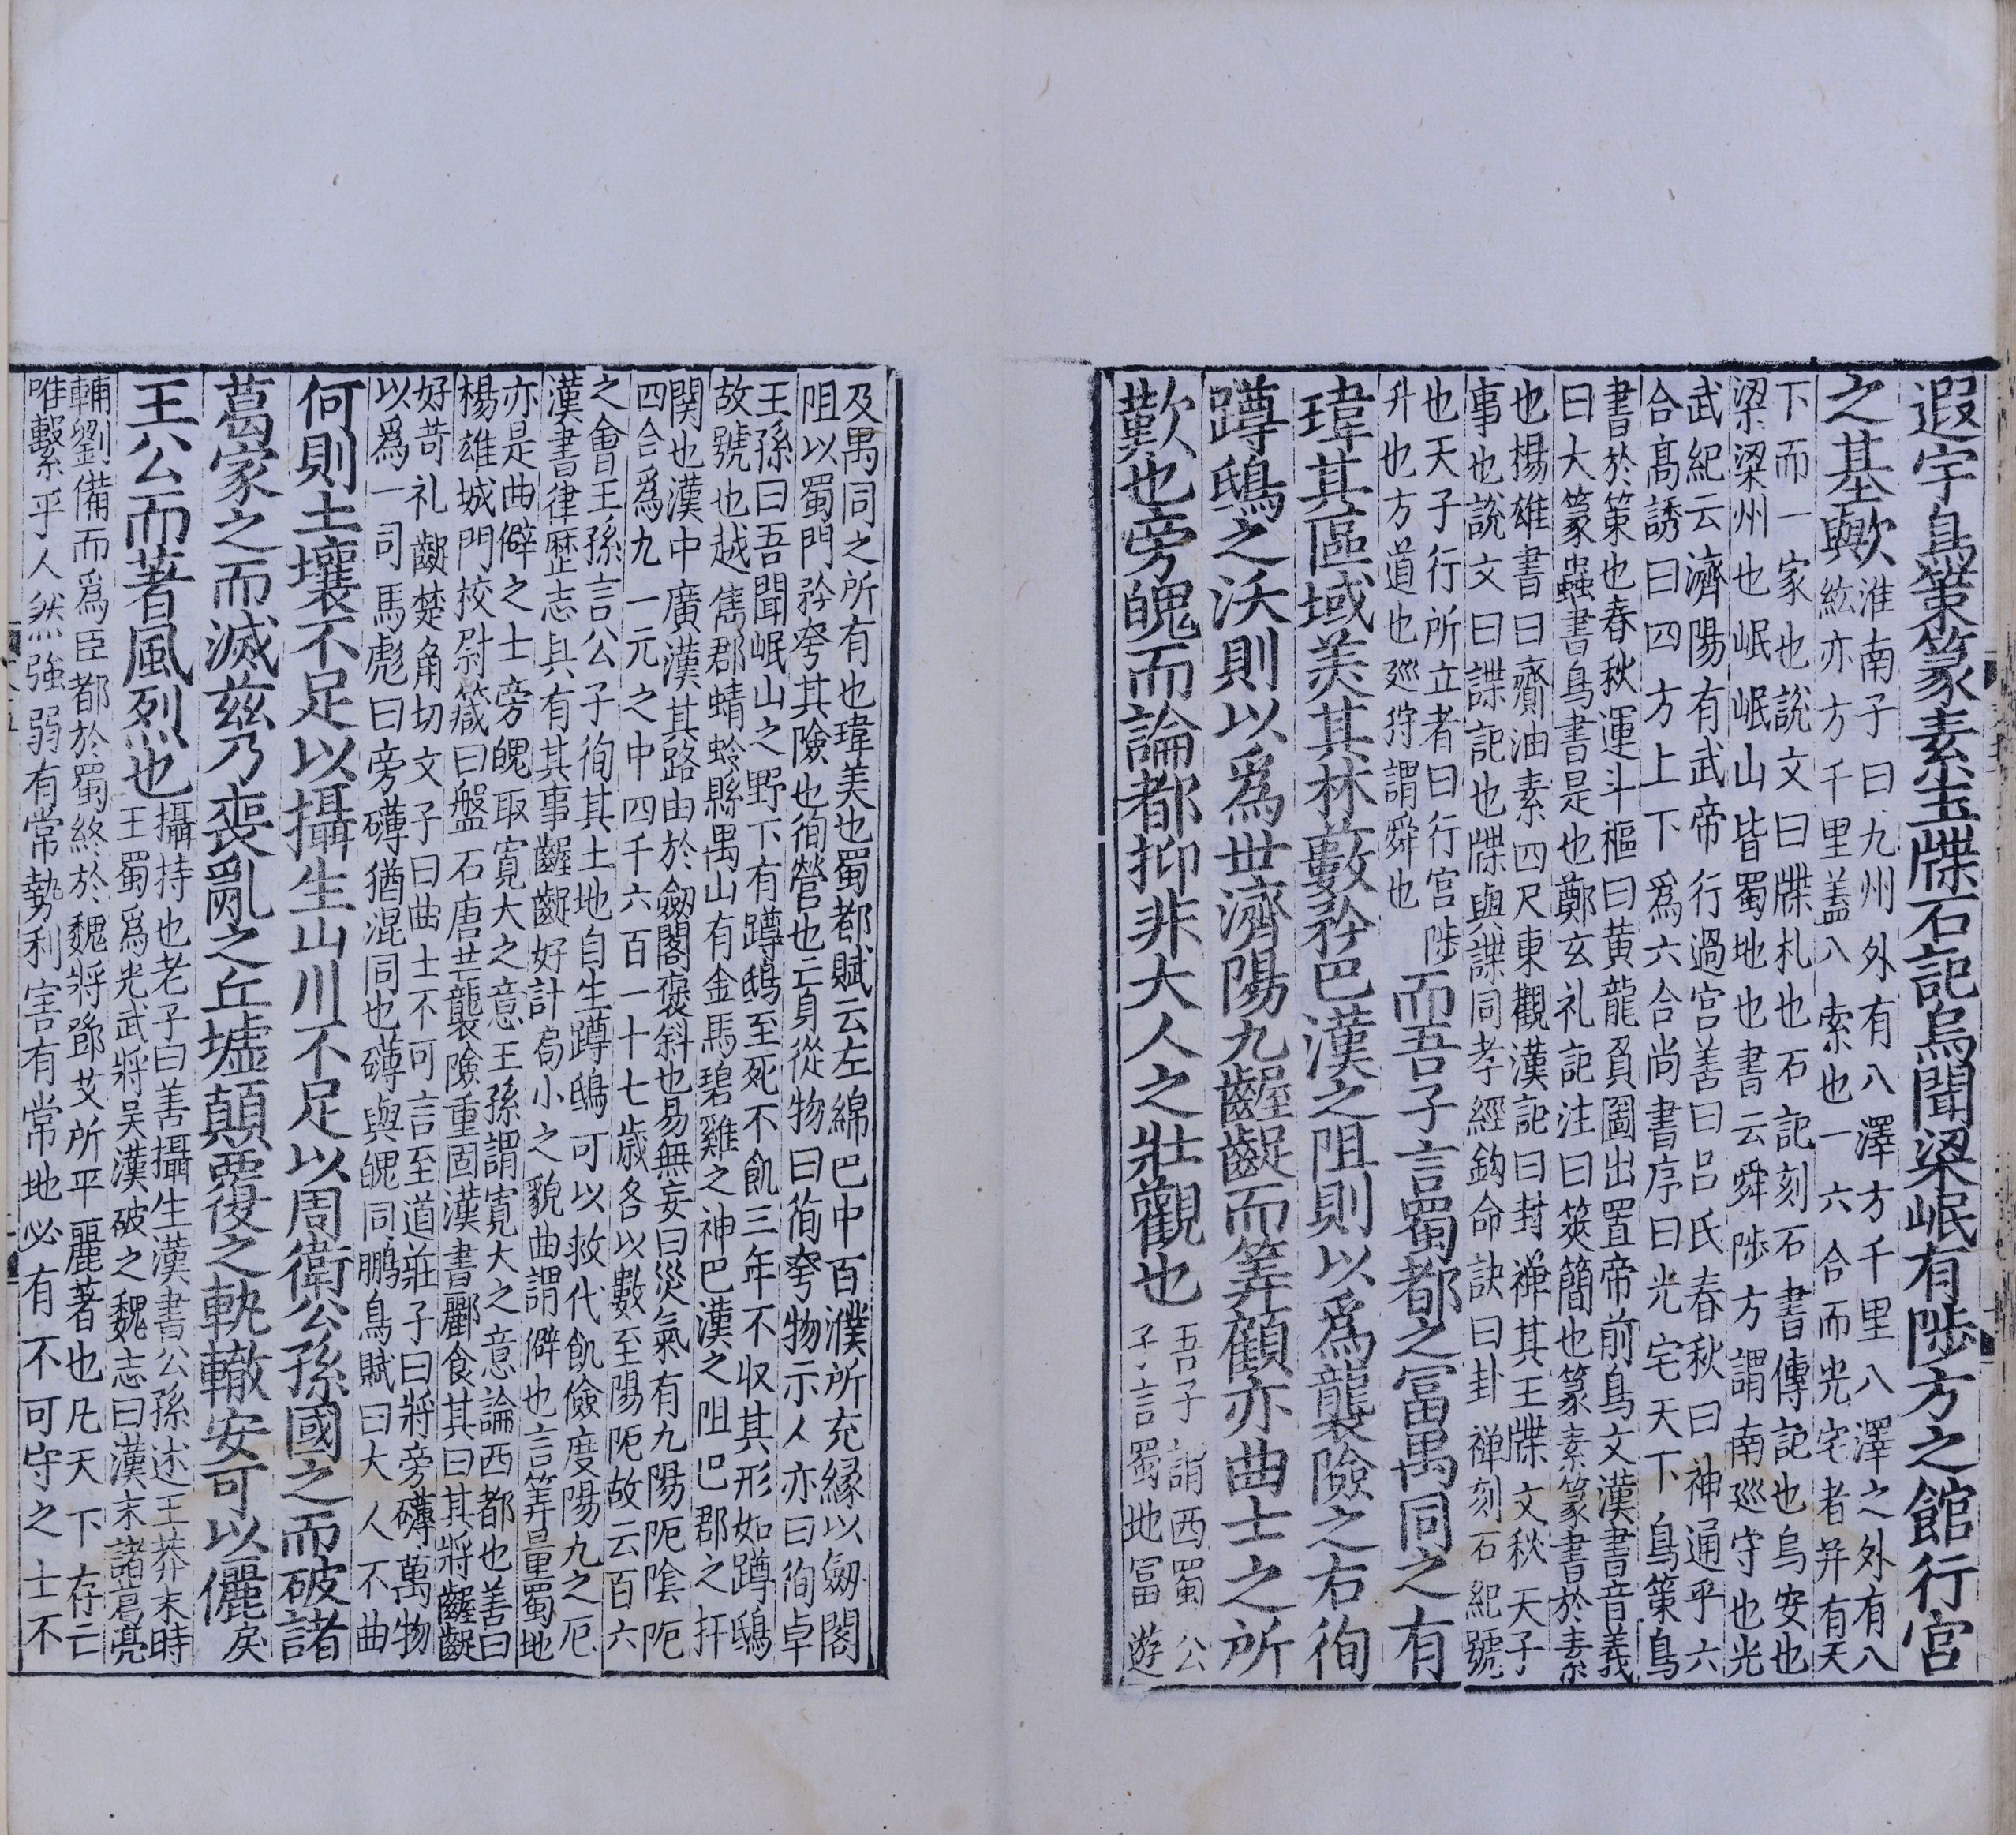 遐宇鳥策篆素玉牒石記烏聞梁岷有陟方之館行宮
之基歟淮南子曰九州外有八澤方千里八澤之外有八
紘亦方千里蓋八索也一六合而光宅者并有天
下而一家也說文曰牒札也石記刻石書傳記也烏安也
梁梁州也岷岷山皆蜀地也書云舜陟方謂南巡守也光
武紀云濟陽有武帝行過宮善曰呂氏春秋曰神通乎六
合高誘曰四方上下爲六合尚書序曰光宅天下鳥策鳥
書於策也春秋運斗樞曰黃龍負圖出置帝前鳥文漢書音義
曰大篆蟲書鳥書是也鄭玄礼記注曰筴簡也篆素篆書於素
也楊雄書曰齎油素四尺東觀漢記曰封禪其玉牒文秘天子
事也說文曰諜記也牒與諜同孝經鈎命訣曰封禪刻石紀號
也天子行所立者曰行宮陟
升也方道也巡狩謂舜也
而吾子言蜀都之富禺同之有
瑋其區域美其林藪矜巴漢之阻則以爲襲險之右徇
蹲鴟之沃則以爲世濟陽九齷齪而筭顧亦曲士之所
歎也旁魄而論都抑非大人之壯觀也吾子謂西蜀公
子言蜀地富遊
及禺同之所有也瑋美也蜀都賦云左綿巴中百濮所充緣以劒閣
阻以蜀門矜夸其險也徇營也亡身從物曰徇夸物示人亦曰徇卓
王孫曰吾聞岷山之野下有蹲鴟至死不飢三年不收其形如蹲鴟
故號也越雋郡蜻蛉縣禺山有金馬碧雞之神巴漢之阻巴郡之扞
関也漢中廣漢其路由於劒閣褒斜也易無妄曰災氣有九陽阨陰阨
四合爲九一元之中四千六百一十七歲各以數至陽阨故云百六
之會王孫言公子徇其土地自生蹲鴟可以救代飢儉度陽九之厄
漢書律歷志具有其事齷齪好計局小之貌曲謂僻也言筭量蜀地
亦是曲僻之士旁魄取寬大之意王孫謂寬大之意論西都也善曰
楊雄城門校尉箴曰盤石唐芒襲險重固漢書酈食其曰其將齷齪
好苛礼齱楚角切文子曰曲士不可言至道莊子曰將旁礴萬物
以爲一司馬彪曰旁礴猶混同也礴與魄同鵩鳥賦曰大人不曲
何則土壤不足以攝生山川不足以周衛公孫國之而破諸
葛家之而滅茲乃喪亂之丘墟顛覆之軌轍安可以儷戾
王公而著風烈也攝持也老子曰善攝生漢書公孫述王莽末時
王蜀爲光武將吳漢破之魏志曰漢末諸葛亮
輔劉備而爲臣都於蜀終於魏將鄧艾所平麗著也凡天下存亡
唯繫乎人然強弱有常勢利害有常地必有不可守之士不